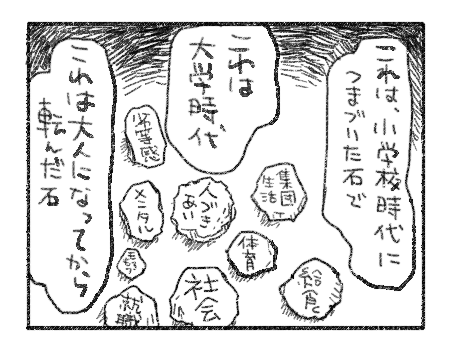 これは、小学校時代に
つまづいた石で
これは
大学時代
これは大人になってから
転んだ石
劣等感
集団
生活
メンタル
人づき
あい
体育
給食
社会
就職